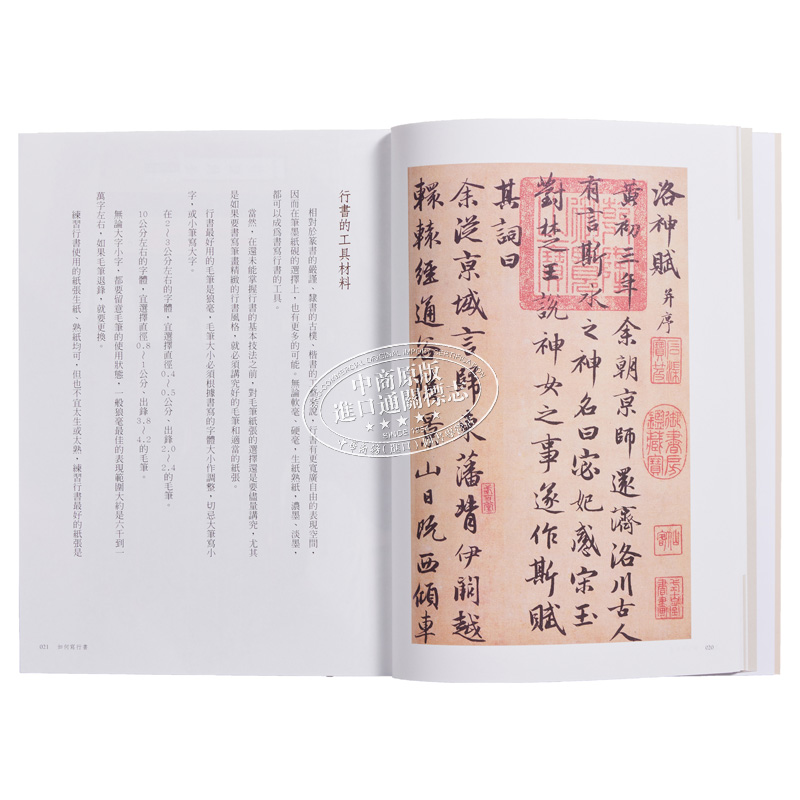 洛神賦 并序
黃初三年余朝京師還濟洛川古人
有言斯水之神名曰宓妃感宋玉
對楚王說神女之事遂作斯賦
其詞曰
余從京域言歸東藩背伊闕越
轘轅經通谷陵景山日既西傾車
020
行書的工具材料
相對於篆書的嚴謹、隸書的古樸、楷書的工整來說,行書有更寬廣自由的表現空間,
因而在筆墨紙硯的選擇上,也有更多的可能。無論軟毫、硬毫,生紙熟紙,濃墨、淡墨,
都可以成為書寫行書的工具。
當然,在還未能掌握行書的基本技法之前,對毛筆紙張的選擇還是要儘量講究,尤其
是如果要書寫筆畫精緻的行書風格,就必須講究好的毛筆和適當的紙張。
行書最好用的毛筆是狼毫,毛筆大小必須根據書寫的字體大小作調整,切忌大筆寫小
字,或小筆寫大字。
在2~3公分左右的字體,宜選擇直徑0.4~0.5公分、出鋒2.0~2.4的毛筆。
10公分左右的字體,宜選擇直徑0.8~1公分、出鋒3.8~4.2的毛筆。
無論大字小字、都要留意毛筆的使用狀態,一般狼毫最佳的表現範圍大約是六千到一
萬字左右,如果毛筆退鋒,就要更換。
練習行書使用的紙張生紙、熟紙均可,但也不宜太生或太熟,練習行書最好的紙張是
021 如何寫行書
御書房鑑藏寶
中商原版
進口通關標志